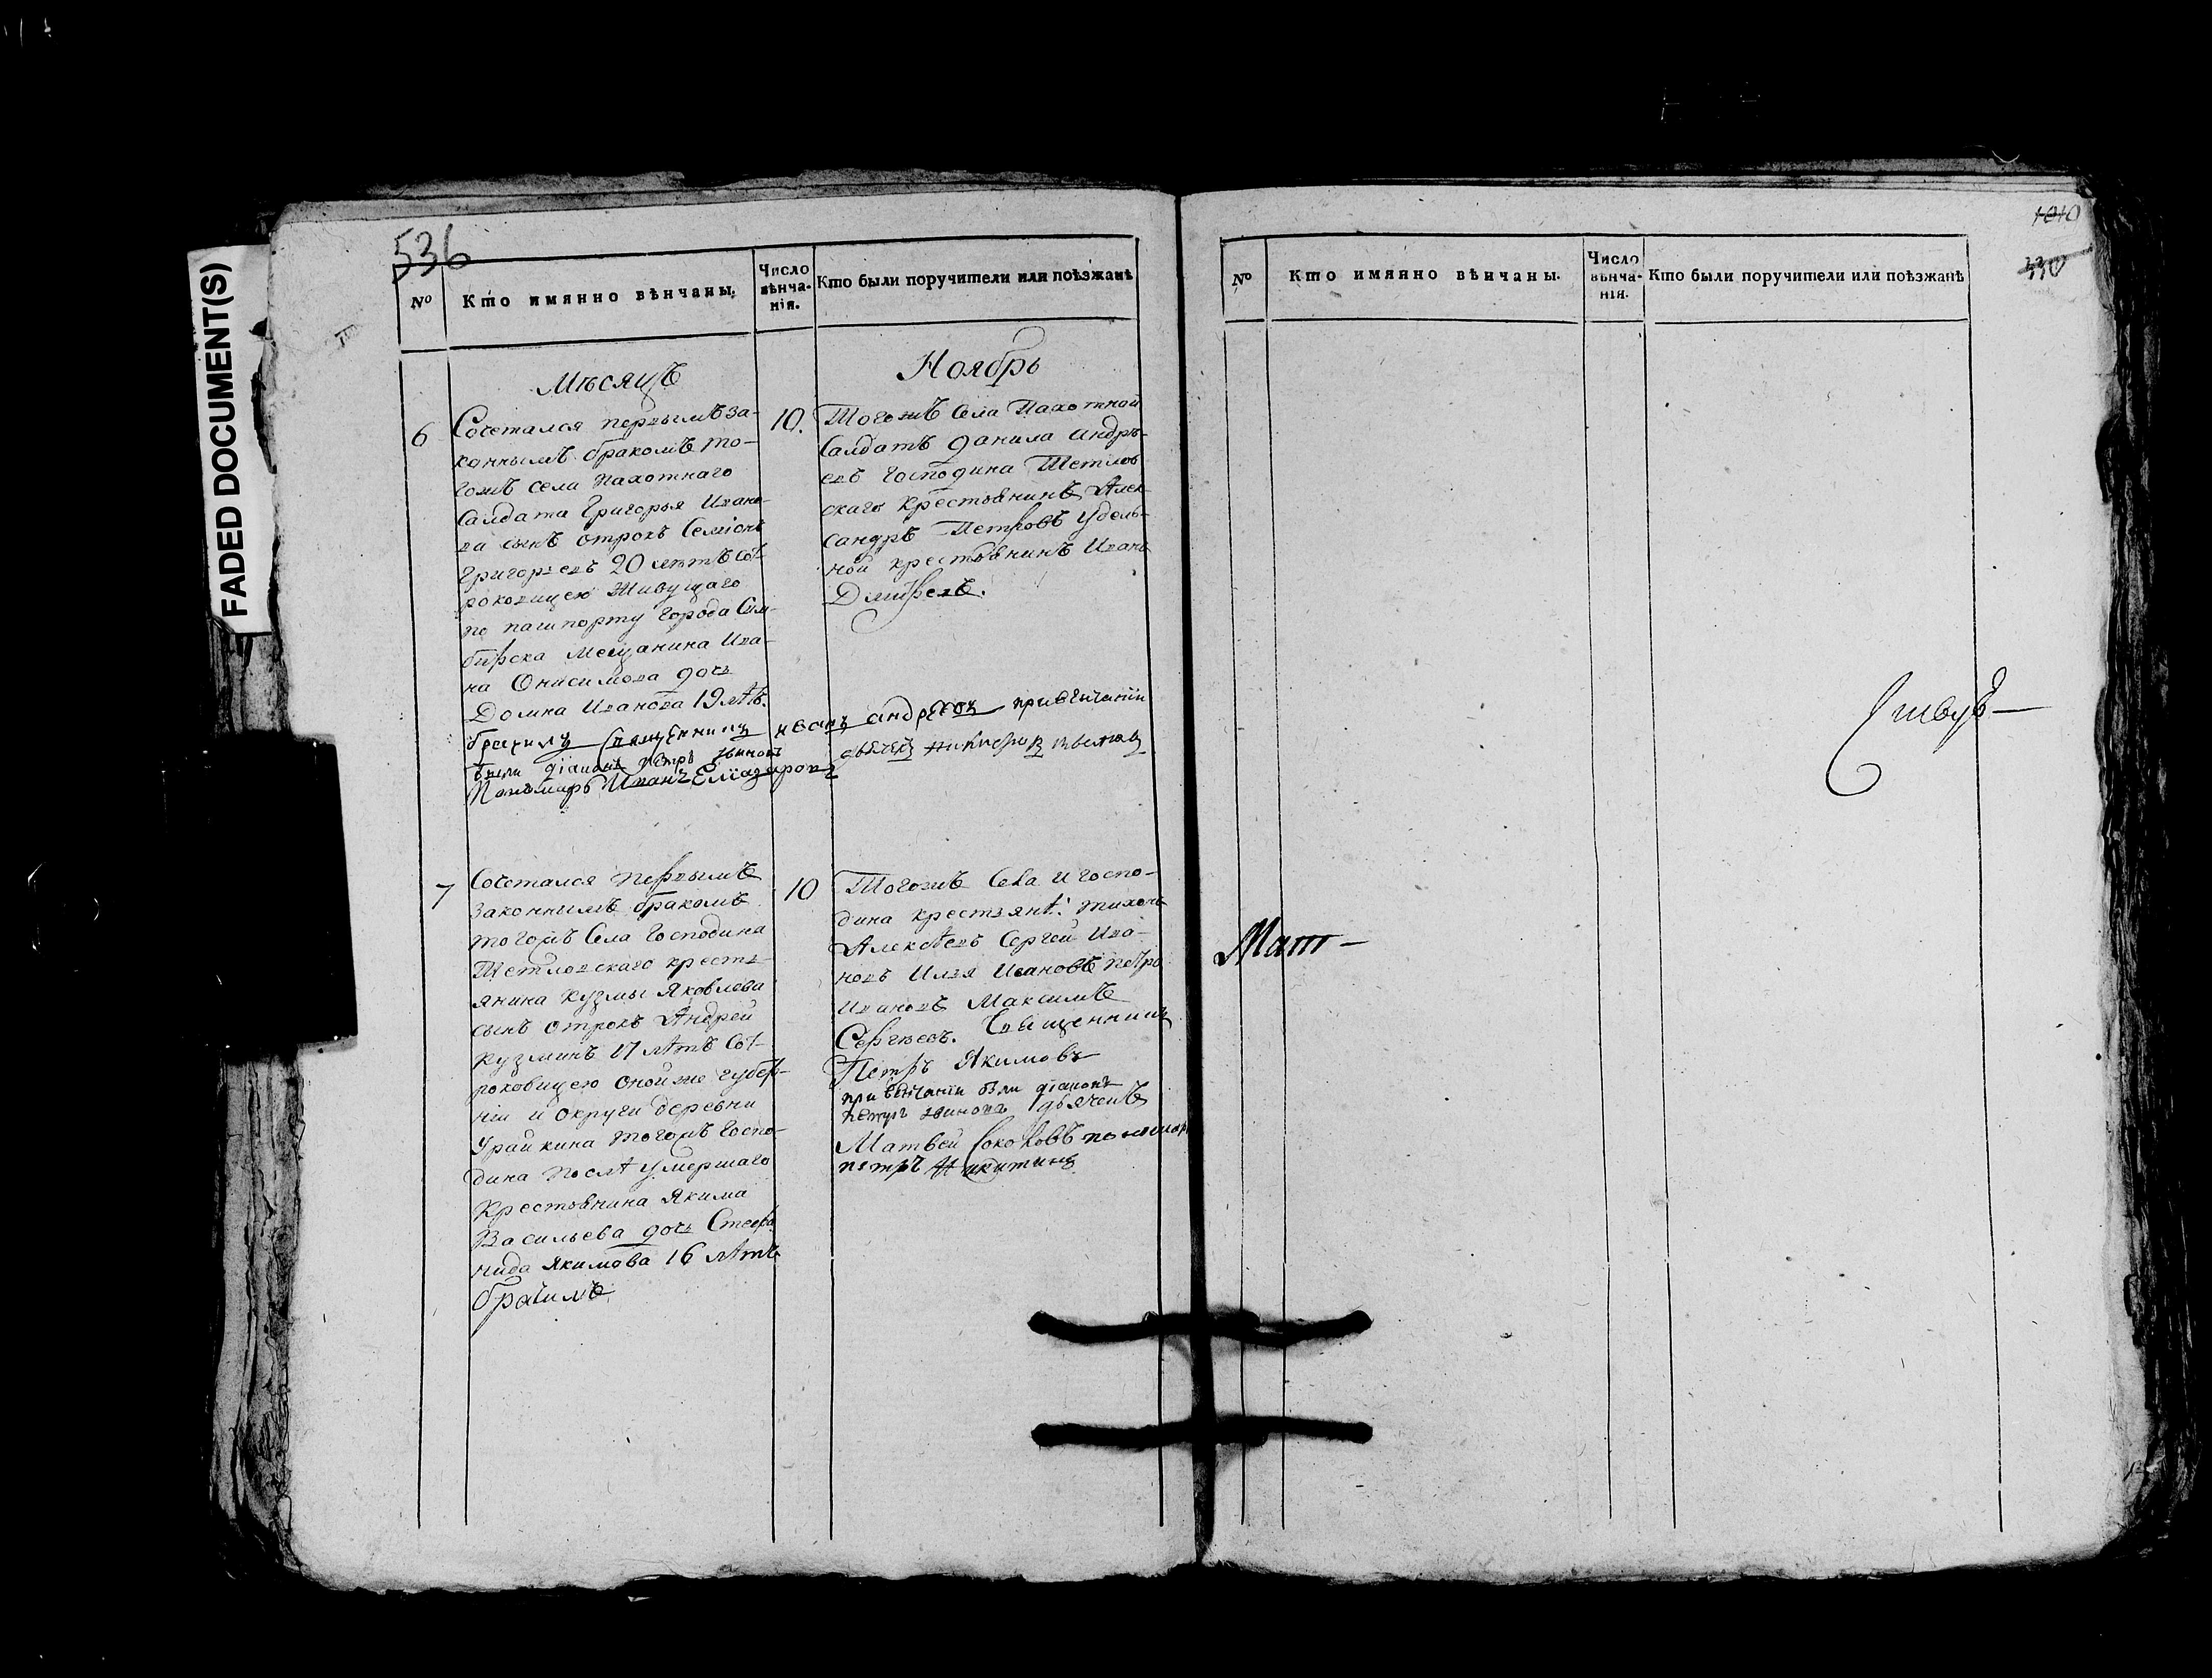 FADED DOCUMENT(S)
536
№
Кто имянно вѣнчаны.
Число вѣнча-нія.
Кто были поручители или поѣзжанѣ
Мѣсяцъ
Ноябрь
6
Сочетался первымъ за-
коннымъ бракомъ то-
гожъ села пахотнаго
Салдата Григорья Ивано-
ва сынъ отрокъ Семіонъ
Григорьевъ 20 лѣтъ Сот-
роковицею Живущаго
по пашпорту города Сим-
бирска Мещанина Ива-
на Онисимова дочь
Домна Иванова 19 лѣтъ.
10.
Тогожъ Села Пахотной
Салдатъ Данила андрѣ-
евъ Господина Тетлов
скаго крестьянинъ Алек-
сандръ Петровъ удель-
ной крестьянинъ Иванъ
Дмитревъ.
брачилъ Священникъ иванъ андреевъ при венчаніи
были діаконъ Петръ дьячекъ
Пономарь Иванъ Еліазаровъ
7
Сочетался первымъ
законнымъ бракомъ
тогожъ Села Господина
Тетловскаго кресть-
янина Кузмы Яковлева
сынъ отрокъ Андрей
Кузминъ 17 лѣтъ Сот-
роковицею Онойже губер-
ніи и округи деревни
Урайкина тогожъ Госпо-
дина послѣ умершаго
Крестьянина Якима
Васильева дочь Стефа
нида Якимова 16 лѣтъ
брачилъ
10
Тогожъ Села и госпо-
дина крестьянѣ: тихонъ
Алексѣевъ Сергей Ива-
новъ Илья Ивановъ петръ
Ивановъ Максимъ
Сергѣевъ. Священникъ
Петръ Якимовъ
при венчаніи были діаконъ
дьячекъ
Матвей Соколовъ пономарь
петръ Никитинъ
1010
530
№
Кто имянно вѣнчаны.
Число вѣнча-нія.
Кто были поручители или поѣзжанѣ
Мат-